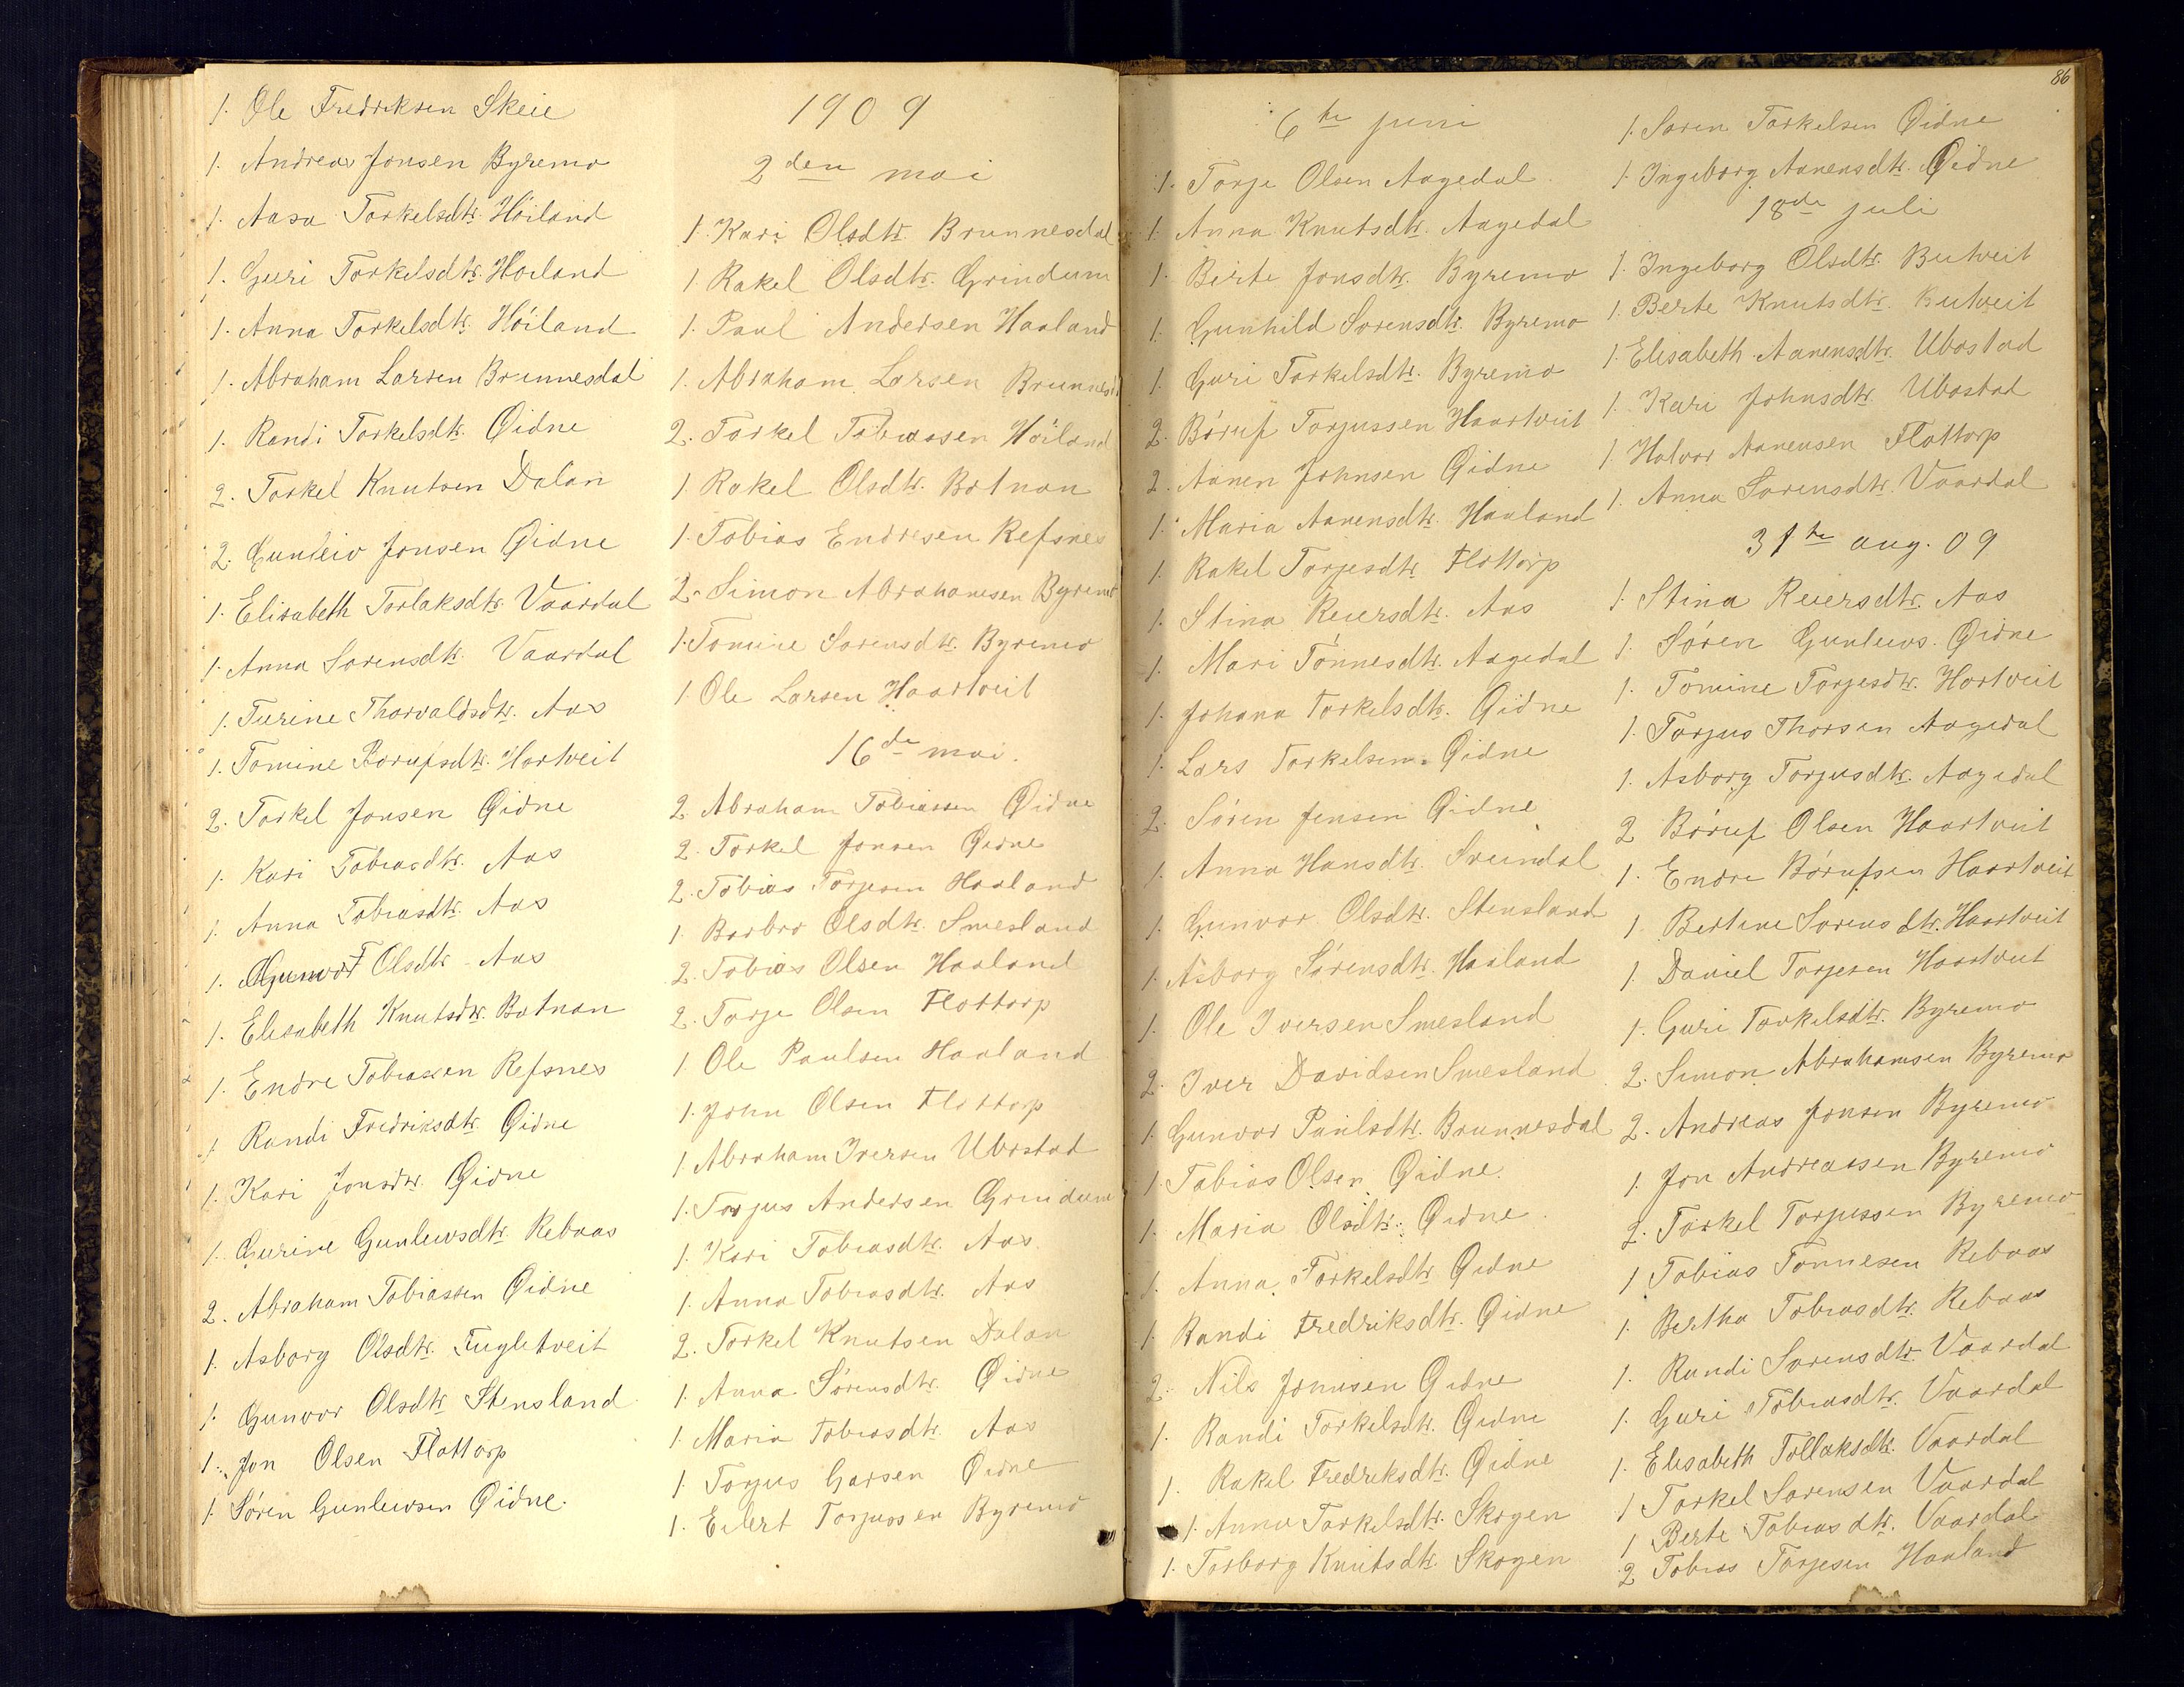 1. Ole Fredriksen Skeie
1. Andreas Jonsen Byremo
1. Aasa Torkelsdtr. Høiland
1. Guri Torkelsdtr. Høiland
1. Anna Torkelsdtr. Høiland
1. Abraham Larsen Brunnesdal
1. Randi Torkelsdtr. Øidne
2. Torkel Knutsen Dalan
2. Gunleiv Jonsen Øidne
1. Elisabeth Torlaksdtr. Vaardal
1. Anna Sorensdtr. Vaardal
1. Turine Thorvaldsdtr. Aas
1. Tomine Børufsdtr. Hortveit
2. Torkel Jonsen Øidne
1. Kari Tobiasdtr. Aas
1. Anna Tobiasdtr. Aas
1. Gunvor Olsdtr. Aas
1. Elisabeth Knutsdtr. Botnan
1. Endre Tobiassen Refsnes
1. Randi Fredriksdtr. Øidne
1. Kari Jonsdtr. Øidne
1. Gurine Gunleivsdtr. Rebaas
2. Abraham Tobiassen Øidne
1. Asborg Olsdtr. Fugletveit
1. Gunvor Olsdtr. Stensland
1. Jon Olsen Flottorp
1. Søren Gunleivsen Øidne.
1909
2den mai
1. Kari Olsdtr. Brunnesdal
1. Rakel Olsdtr. Grindum
1. Paul Andersen Haaland
1. Abraham Larsen
2. Torkel Tobiassen Høiland
1. Rakel Olsdtr. Botnan
1. Tobias Endresen Refsnes
2. Simon Abrahamsen Byremo
1. Tomine Sorensdtr. Byremo
1. Ole Larsen Haartveit
16de mai.
2. Abraham Tobiassen Øidne
2. Torkel Jonsen Øidne
2. Tobias Torjesen Haaland
1. Barbro Olsdtr. Smesland
2. Tobias Olsen Haaland
2. Torje Olsen Flottorp
1. Ole Paulsen Haaland
1. John Olsen Flottorp
1. Abraham Iversen Ubostad
1. Torjus Andersen Grindum
1. Kari Tobiasdtr. Aas
1. Anna Tobiasdtr. Aas
2. Torkel Knutsen Dalan
1. Anna Sørensdtr. Øidne
1. Maria Tobiasdtr. Aas
1. Torjus Garsen Øidne
1. Eilert Torjussen Byremo
86
6te juni
1. Torje Olsen Aagedal
1. Anna Knutsdtr. Aagedal
1. Birte Jonsdtr. Byremo
1. Gunhild Sorensdtr. Byremo
1. Guri Torkelsdtr. Byremo
2. Børuf Torjussen Haartveit
2. Aanen Johnsen Øidne
1. Maria Aanensdtr. Haaland
1. Rakel Torjesdtr. Flottorp
1. Stina Reiersdtr. Aas
1. Mari Tønnesdtr. Aagedal
1. Johana Torkelsdtr. Øidne
1. Lars Torkelsen Øidne
2. Søren Jensen Øidne
1. Anna Hansdtr. Sveindal
1. Gunvor Olsdtr. Stensland
1. Asborg Sørensdtr. Haaland
1. Ole Iversen Smesland
2. Iver Davidsen Smesland
1. Gunvor Paulsdtr. Brunnesdal
1. Tobias Olsen Øidne.
1. Maria Olsdtr. Øidne.
1. Anna Torkelsdtr. Øidne
1. Randi Fredriksdtr. Øidne
2. Nils Jonnsen Øidne
1. Randi Torkelsdtr. Øidne
1. Rakel Fredriksdtr. Øidne
1. Anna Torkelsdtr. Skogen
1. Torborg Knutsdtr. Skogen
1. Soren Torkelsen Øidne
1. Ingeborg Aanensdtr. Øidne
18de juli
1. Ingeborg Olsdtr. Butveit
1. Berte Knutsdtr. Butveit
1. Elisabeth Aanensdtr. Ubostad
1. Kari Johnsdtr. Ubostad
1. Halvor Aanensen Flottorp
1. Anna Sorensdtr. Vaardal
31te aug. 09
1. Stina Reiersdtr. Aas
1. Søren Gunleivs. Øidne
1. Tomine Torjesdtr. Hortveit
1. Torjus Thorsen Aagedal
1. Asborg Torjusdtr. Aagedal
2 Børuf Olsen Haartveit
1. Endre Børufsen Haartveit
1. Bertine Sorensdtr. Haartveit
1. Daniel Torjesen Haartveit
1. Guri Torkelsdtr. Byremo
2. Simon Abrahamsen Byremo
2. Andreas Jonsen Byremo
1. Jon Andreassen Byremo
2. Torkel Torjussen Byremo
1 Tobias Tonnesen Rebaas
1. Bertha Tobiasdtr. Rebaas
1. Randi Sorensdtr. Vaardal
1. Guri Tobiasdtr. Vaardal
1. Elisabeth Tollaksdtr. Vaardal
1 Torkel Sorensen Vaardal
1 Berte Tobiasdtr. Vaardal
2 Tobias Torjesen Haaland